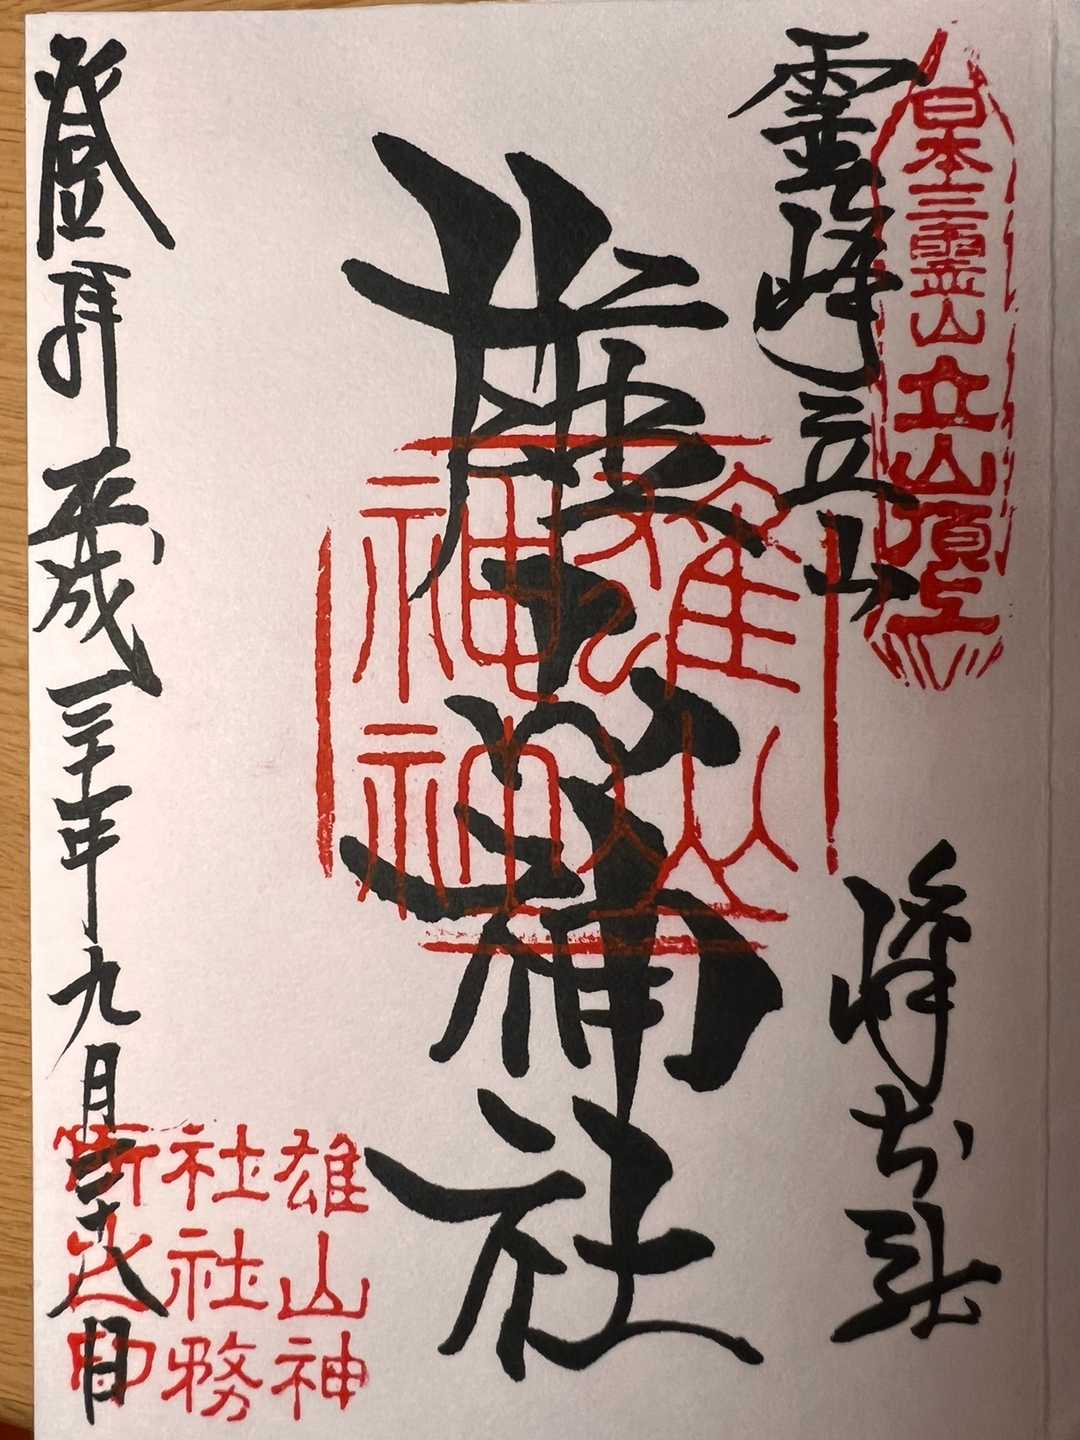 日本三霊山立山頂上
霊峰立山
峰本社
雄山神社
雄山
神社
登拝 平成三十年九月二十八日
雄山神
社社務
所之印